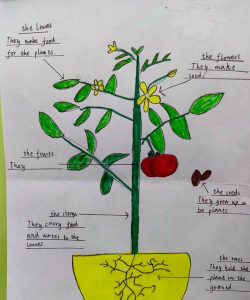 the leaves
They make food
for the plants.
the flowers
They make
seeds.
the fruits
They
the seeds
They grow up to
be plants.
the stems
They carry food
and water to the
leaves.
the roots
They hold the
plant in the
ground